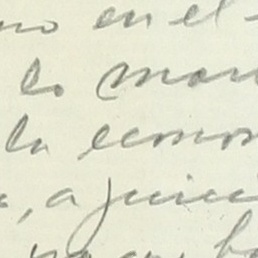 no en el
lo mora
la econom
, a juici